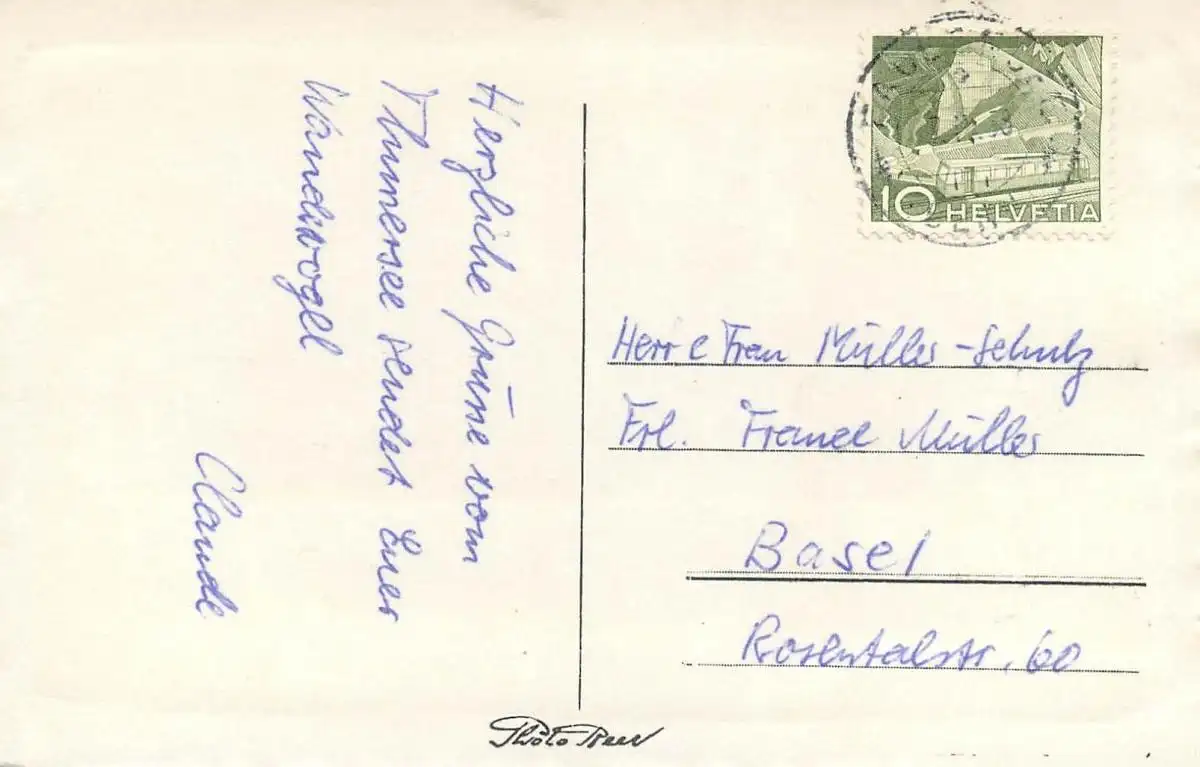 Herzliche Grüsse vom
Thunersee sendet Euer
Wandervogel
Claude
10 HELVETIA
Herr e Frau Müller-Schulz
Frl. France Müller
Basel
Rosentalstr. 60